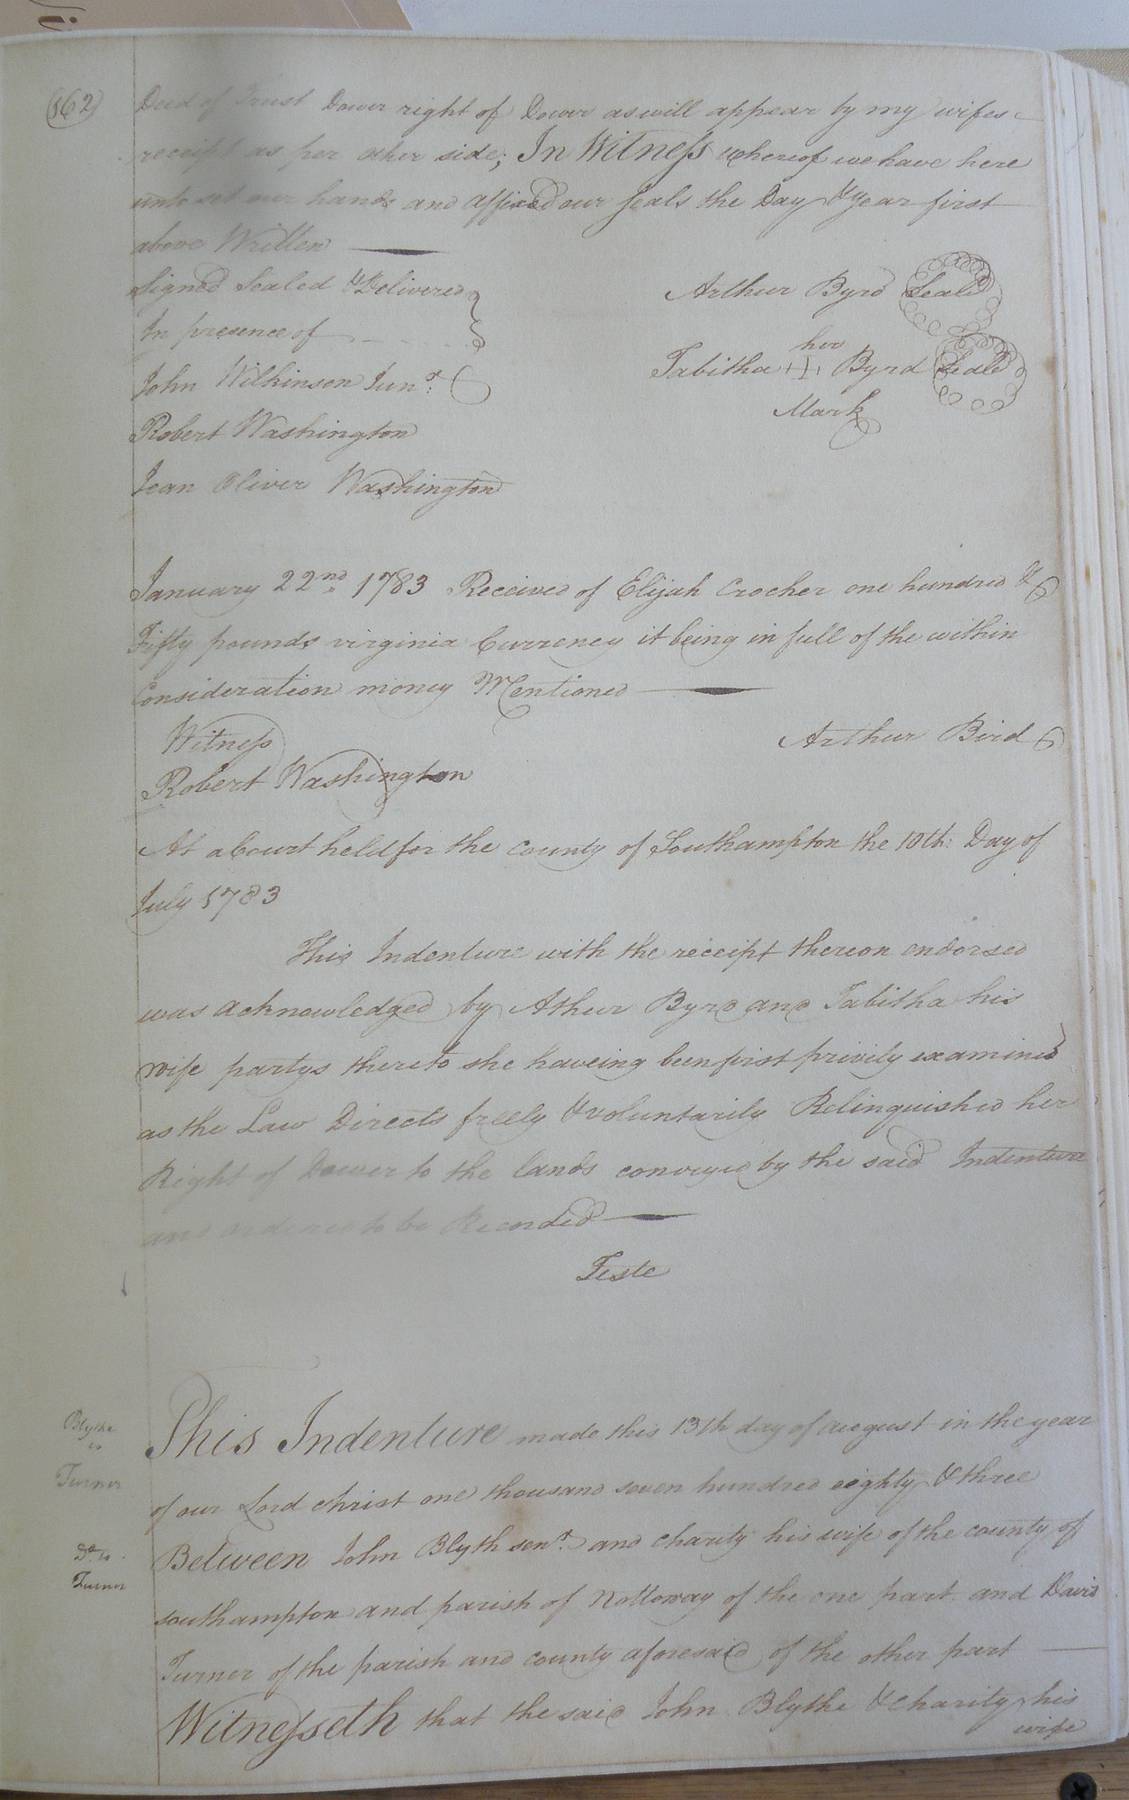 162
Deed of Trust Dower right of Dower as will appear by my wifes
receipt as per other side; In Witness whereof we have here
unto set our hands and affixed our seals the Day & year first
above Written
Signed Sealed & Delivered
In presence of
Arthur Byrd Seale
her
Tabitha + Byrd Seale
Mark
John Wilkinson Junr.
Robert Washington
Jean Oliver Washington
January 22nd 1783 Received of Elijah Crocher one hundred &
Fifty pounds virginia Currency it being in full of the within
Consideration money Mentioned
Witness
Arthur Bird
Robert Washington
At a Court held for the County of Southampton the 10th: Day of
July 1783
This Indenture with the receipt thereon endorsed
was acknowledged by Athur Byrd and Tabitha his
wife partys thereto she haveing been first privily examined
as the Law Directs freely & voluntarily Relinguished her
Right of Dower to the lands conveyed by the said Indenture
and ordered to be Recorded
Teste
Blythe
to
Turner
This Indenture made this 13th day of august in the year
of our Lord christ one thousand seven hundred eighty & three
Between John Blyth senr. and Charity his wife of the county of
Dd. to
Turner
southampton and parish of Nottoway of the one part and David
Turner of the parish and county aforesaid of the other part
Witnesseth that the said John Blythe & Charity his
wife